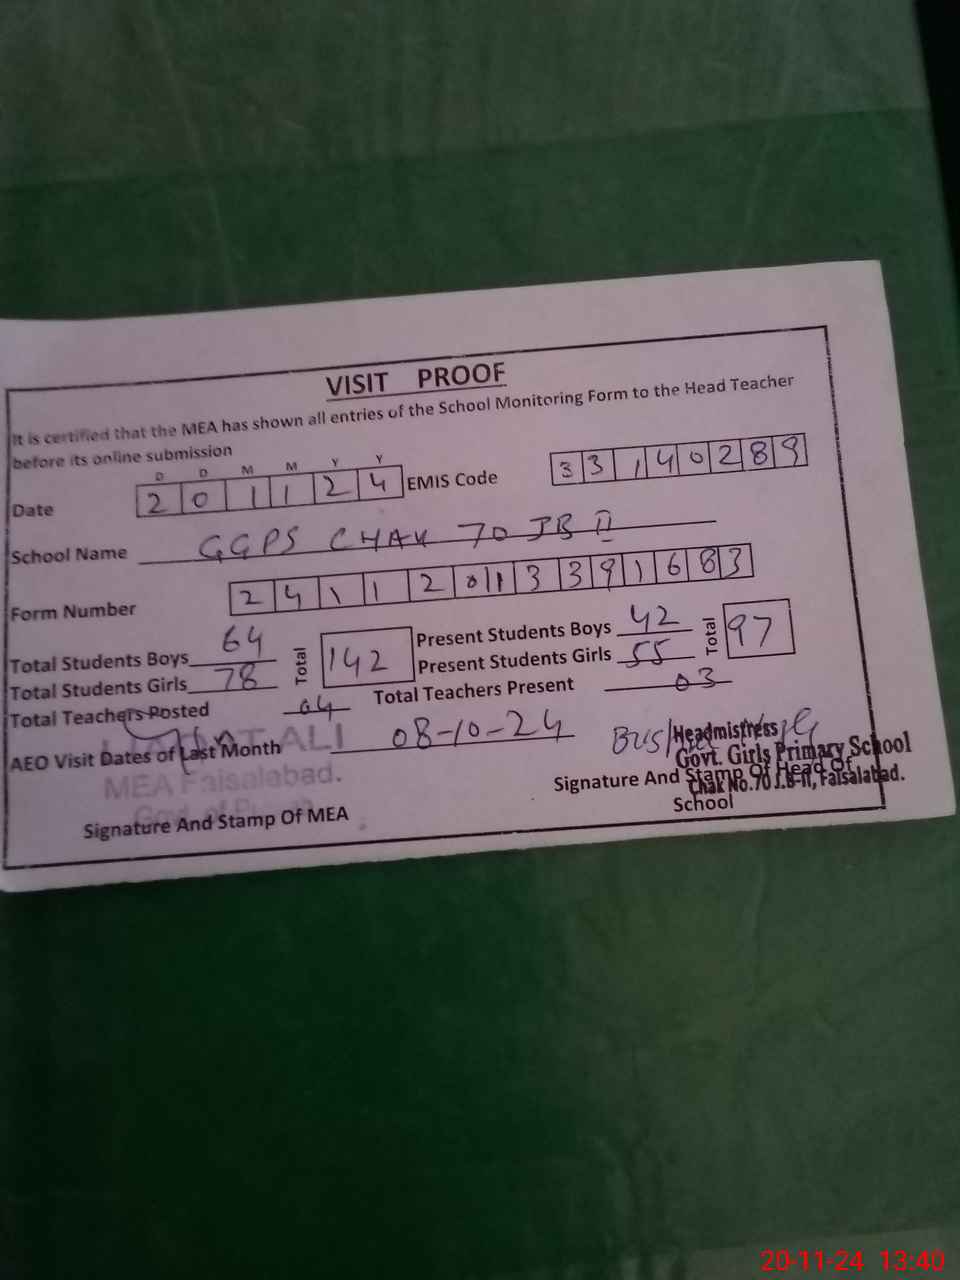 VISIT PROOF
It is certified that the MEA has shown all entries of the School Monitoring Form to the Head Teacher
before its online submission
D D M M Y Y
Date 2 0 1 1 2 4 EMIS Code 3 3 1 4 0 2 8 9
School Name GGPS CHAK 70 JB II
Form Number 2 4 1 1 2 0 1 3 3 9 1 6 8 3
Total Students Boys 64 Total 142 Present Students Boys 42 Total 97
Total Students Girls 78 Present Students Girls 55
Total Teachers Posted 04 Total Teachers Present 03
AEO Visit Dates of Last Month 08-10-24
ALI
MEA Faisalabad.
Headmistress
Govt. Girls Primary School
Chak No.70 J.B-II, Faisalabad.
Signature And Stamp Of MEA
Signature And Stamp Of Head Of
School
20-11-24 13:40